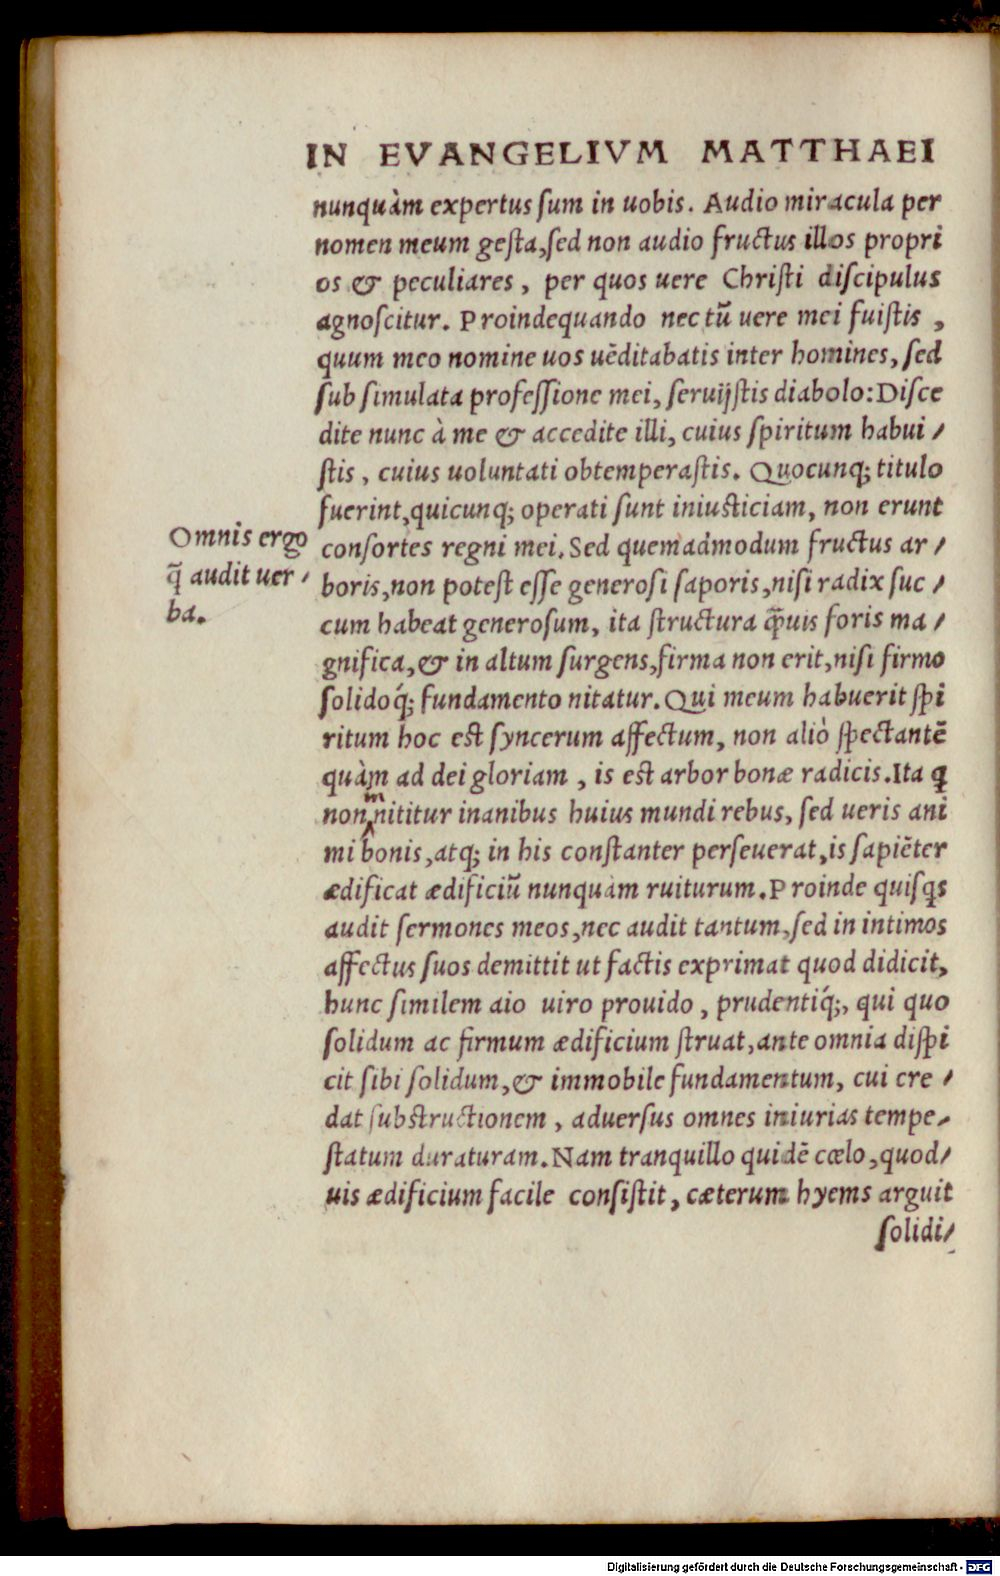 IN EVANGELIVM MATTHAEI
nunquàm expertus ſum in uobis. Audio miracula per
nomen meum geſta,ſed non audio fructus illos propri
os & peculiares, per quos uere Chriſti diſcipulus
agnoſcitur. Proindequando nec tū uere mei fuiſtis ,
quum meo nomine uos uēditabatis inter homines, ſed
ſub ſimulata profeſſione mei, ſeruijſtis diabolo:Diſce
dite nunc à me & accedite illi, cuius ſpiritum habui/
ſtis, cuius uoluntati obtemperaſtis. Quocunq; titulo
fuerint,quicunq; operati ſunt iniuſticiam, non erunt
Omnis ergo
q̄ audit uer/
ba.
conſortes regni mei. Sed quemadmodum fructus ar/
boris,non poteſt eſſe generoſi ſaporis,niſi radix ſuc/
cum habeat generoſum, ita ſtructura q̄uis foris ma/
gnifica,& in altum ſurgens,firma non erit,niſi firmo
ſolidoq́; fundamento nitatur. Qui meum habuerit ſpi
ritum hoc eſt ſyncerum affectum, non aliò ſpectantē
quàm ad dei gloriam , is eſt arbor bonæ radicis. Ita q
in
non nititur inanibus huius mundi rebus, ſed ueris ani
mi bonis,atq; in his conſtanter perſeuerat,is ſapiēter
ædificat ædificiū nunquàm ruiturum. Proinde quiſqs
audit ſermones meos,nec audit tantum,ſed in intimos
affectus ſuos demittit ut factis exprimat quod didicit,
hunc ſimilem aio uiro prouido , prudentiq́;, qui quo
ſolidum ac firmum ædificium ſtruat,ante omnia diſpi
cit ſibi ſolidum,& immobile fundamentum, cui cre/
dat ſubſtructionem , aduerſus omnes iniurias tempe/
ſtatum duraturam. Nam tranquillo quidē cœlo,quod/
uis ædificium facile conſiſtit, cæterum hyems arguit
ſolidi/
Digitalisierung gefördert durch die Deutsche Forschungsgemeinschaft - DFG